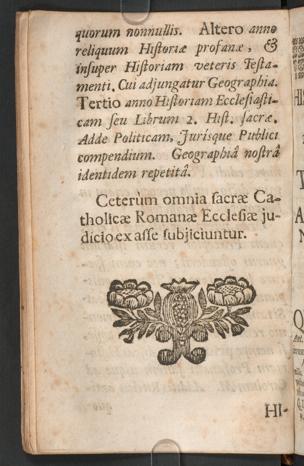 quorum nonnullis. Altero anno
reliquum Historiæ profanæ, &
insuper Historiam veteris Testa-
menti. Cui adjungatur Geographia.
Tertio anno Historiam Ecclesiasti-
cam seu Librum 2. Hist. sacræ.
Adde Politicam, Jurisque Publici
compendium. Geographiâ nostrâ
identidem repetitâ.
Ceterùm omnia sacræ Ca-
tholicæ Romanæ Ecclesiæ ju-
dicio ex asse subjiciuntur.
HI-